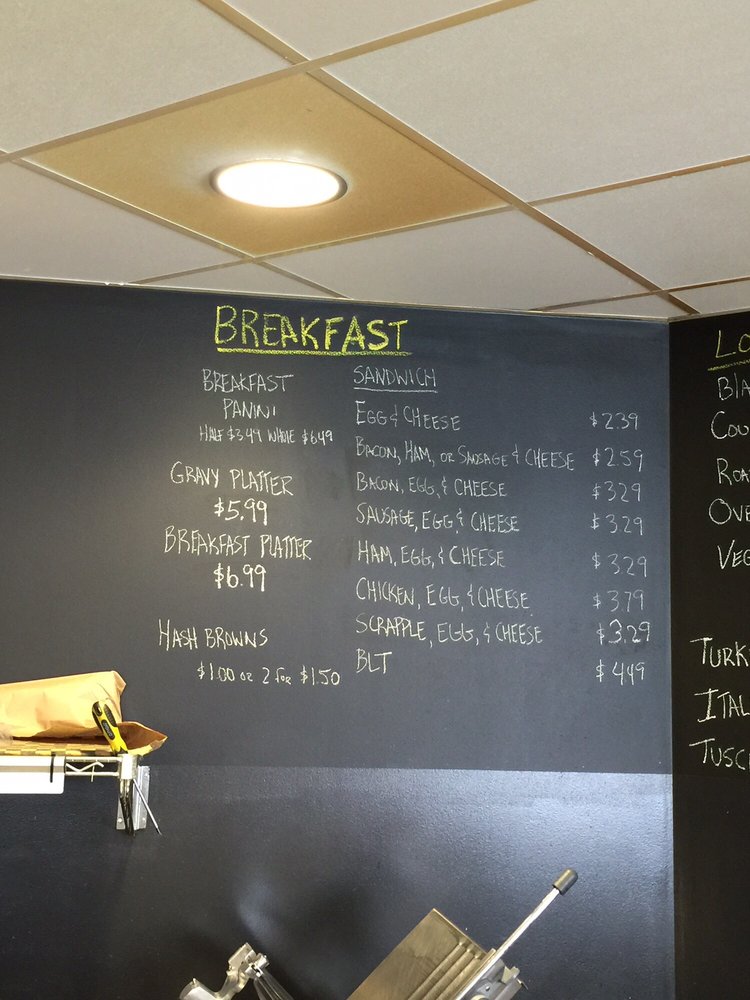 BREAKFAST
BREAKFAST
PANINI
HALF $3.49 WHOLE $6.49
GRAVY PLATTER
$5.99
BREAKFAST PLATTER
$6.99
HASH BROWNS
$1.00 OR 2 FOR $1.50
SANDWICH
EGG & CHEESE $2.39
BACON, HAM, OR SAUSAGE & CHEESE $2.59
BACON, EGG, & CHEESE $3.29
SAUSAGE, EGG, & CHEESE $3.29
HAM, EGG, & CHEESE $3.29
CHICKEN, EGG, & CHEESE $3.79
SCRAPPLE, EGG, & CHEESE $3.29
BLT $4.49
LO
BLA
COU
ROA
OVE
VEG
TURK
ITAL
TUSC